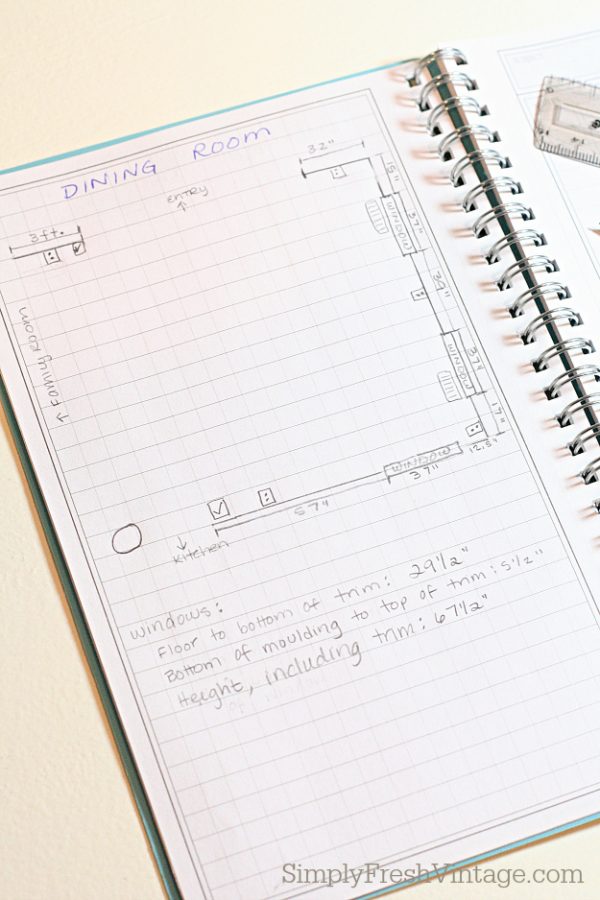 DINING ROOM
32"
entry
15"
WINDOW
37"
3ft.
62"
Family Room
WINDOW
37"
17"
12.5"
WINDOW
37"
57"
Kitchen
Windows:
Floor to bottom of trim: 29 1/2"
Bottom of moulding to top of trim: 5 1/2"
Height, including trim: 67 1/2"
SimplyFreshVintage.com